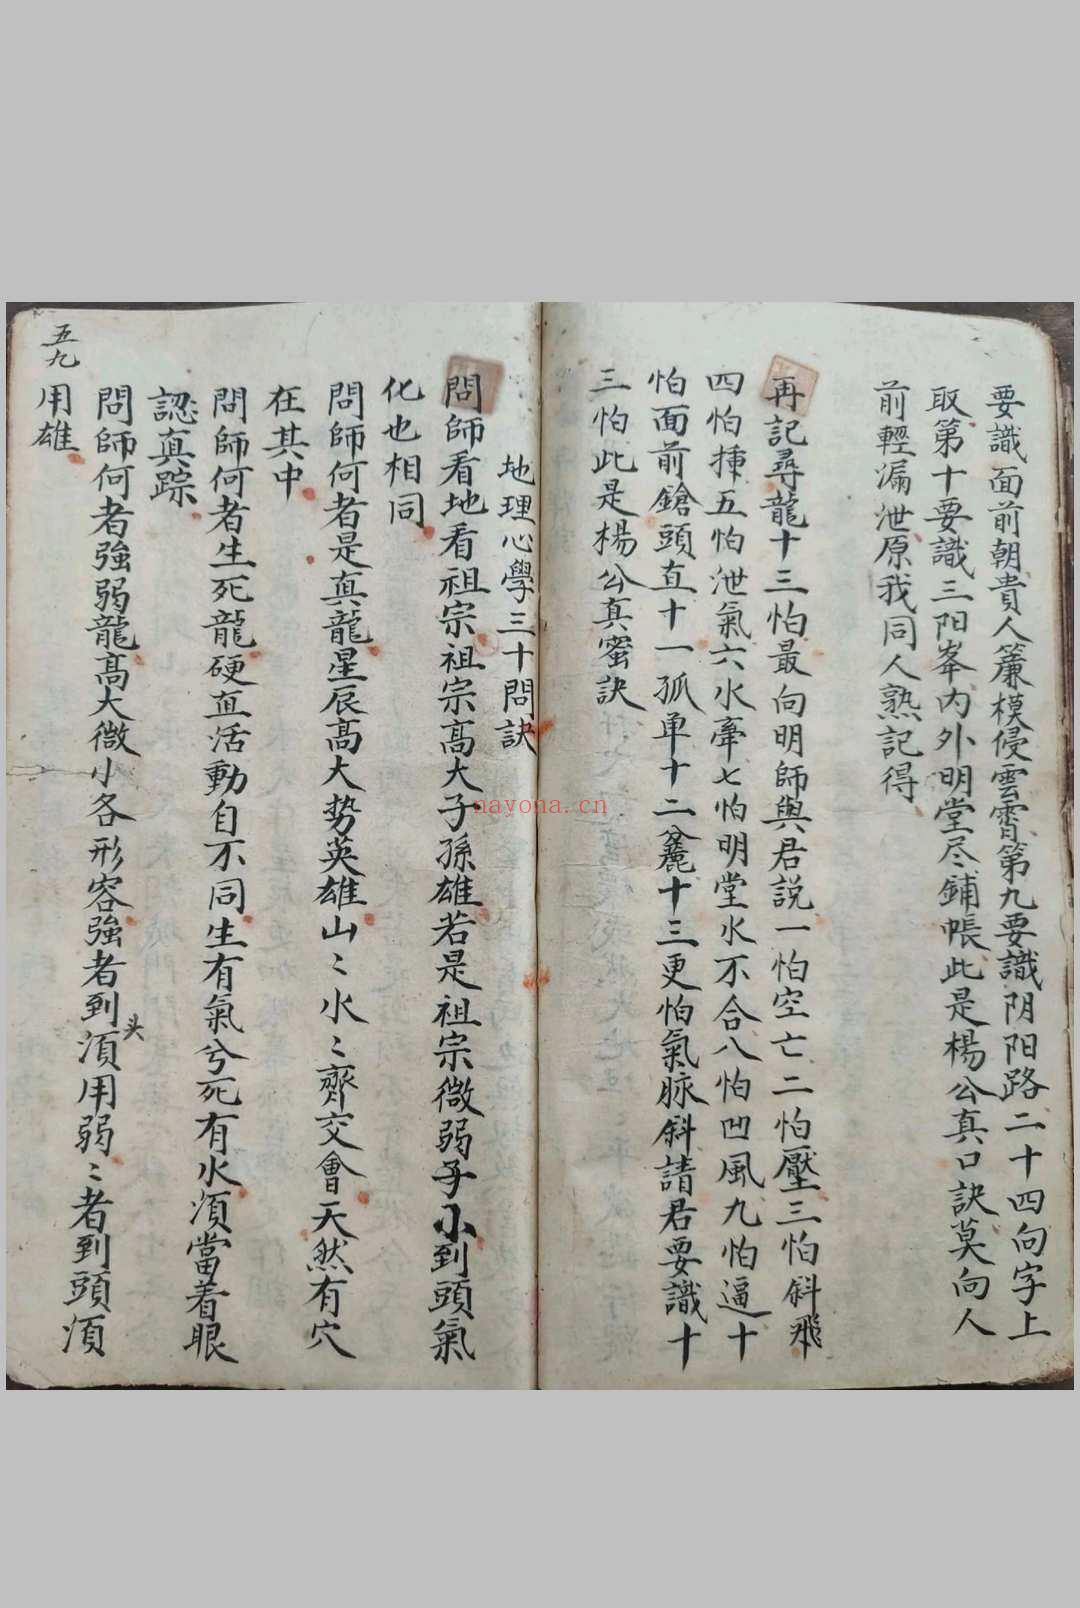 要識面前朝貴人簾模侵雲霄第九要識阴阳路二十四向字上
取第十要識三阳峯内外明堂尽鋪帳此是楊公真口訣莫向人
前輕漏泄原我同人熟記得
再記尋龍十三怕最向明師與君説一怕空亡二怕壓三怕斜飛
四怕揰五怕泄氣六水牽七怕明堂水不合八怕凹風九怕逼十
怕面前鎗頭直十一孤单十二麄十三更怕氣脉斜請君要識十
三怕此是楊公真蜜訣
地理心學三十問訣
問師看地看祖宗祖宗髙大子孫雄若是祖宗微弱子小到頭氣
化也相同
問師何者是真龍星辰髙大势英雄山〻水〻齊交會天然有穴
在其中
問師何者生死龍硬直活動自不同生有氣兮死有水湏當着眼
認真踪
問師何者強弱龍髙大微小各形容強者到头湏用弱〻者到頭湏
用雄
五九
nayona.cn